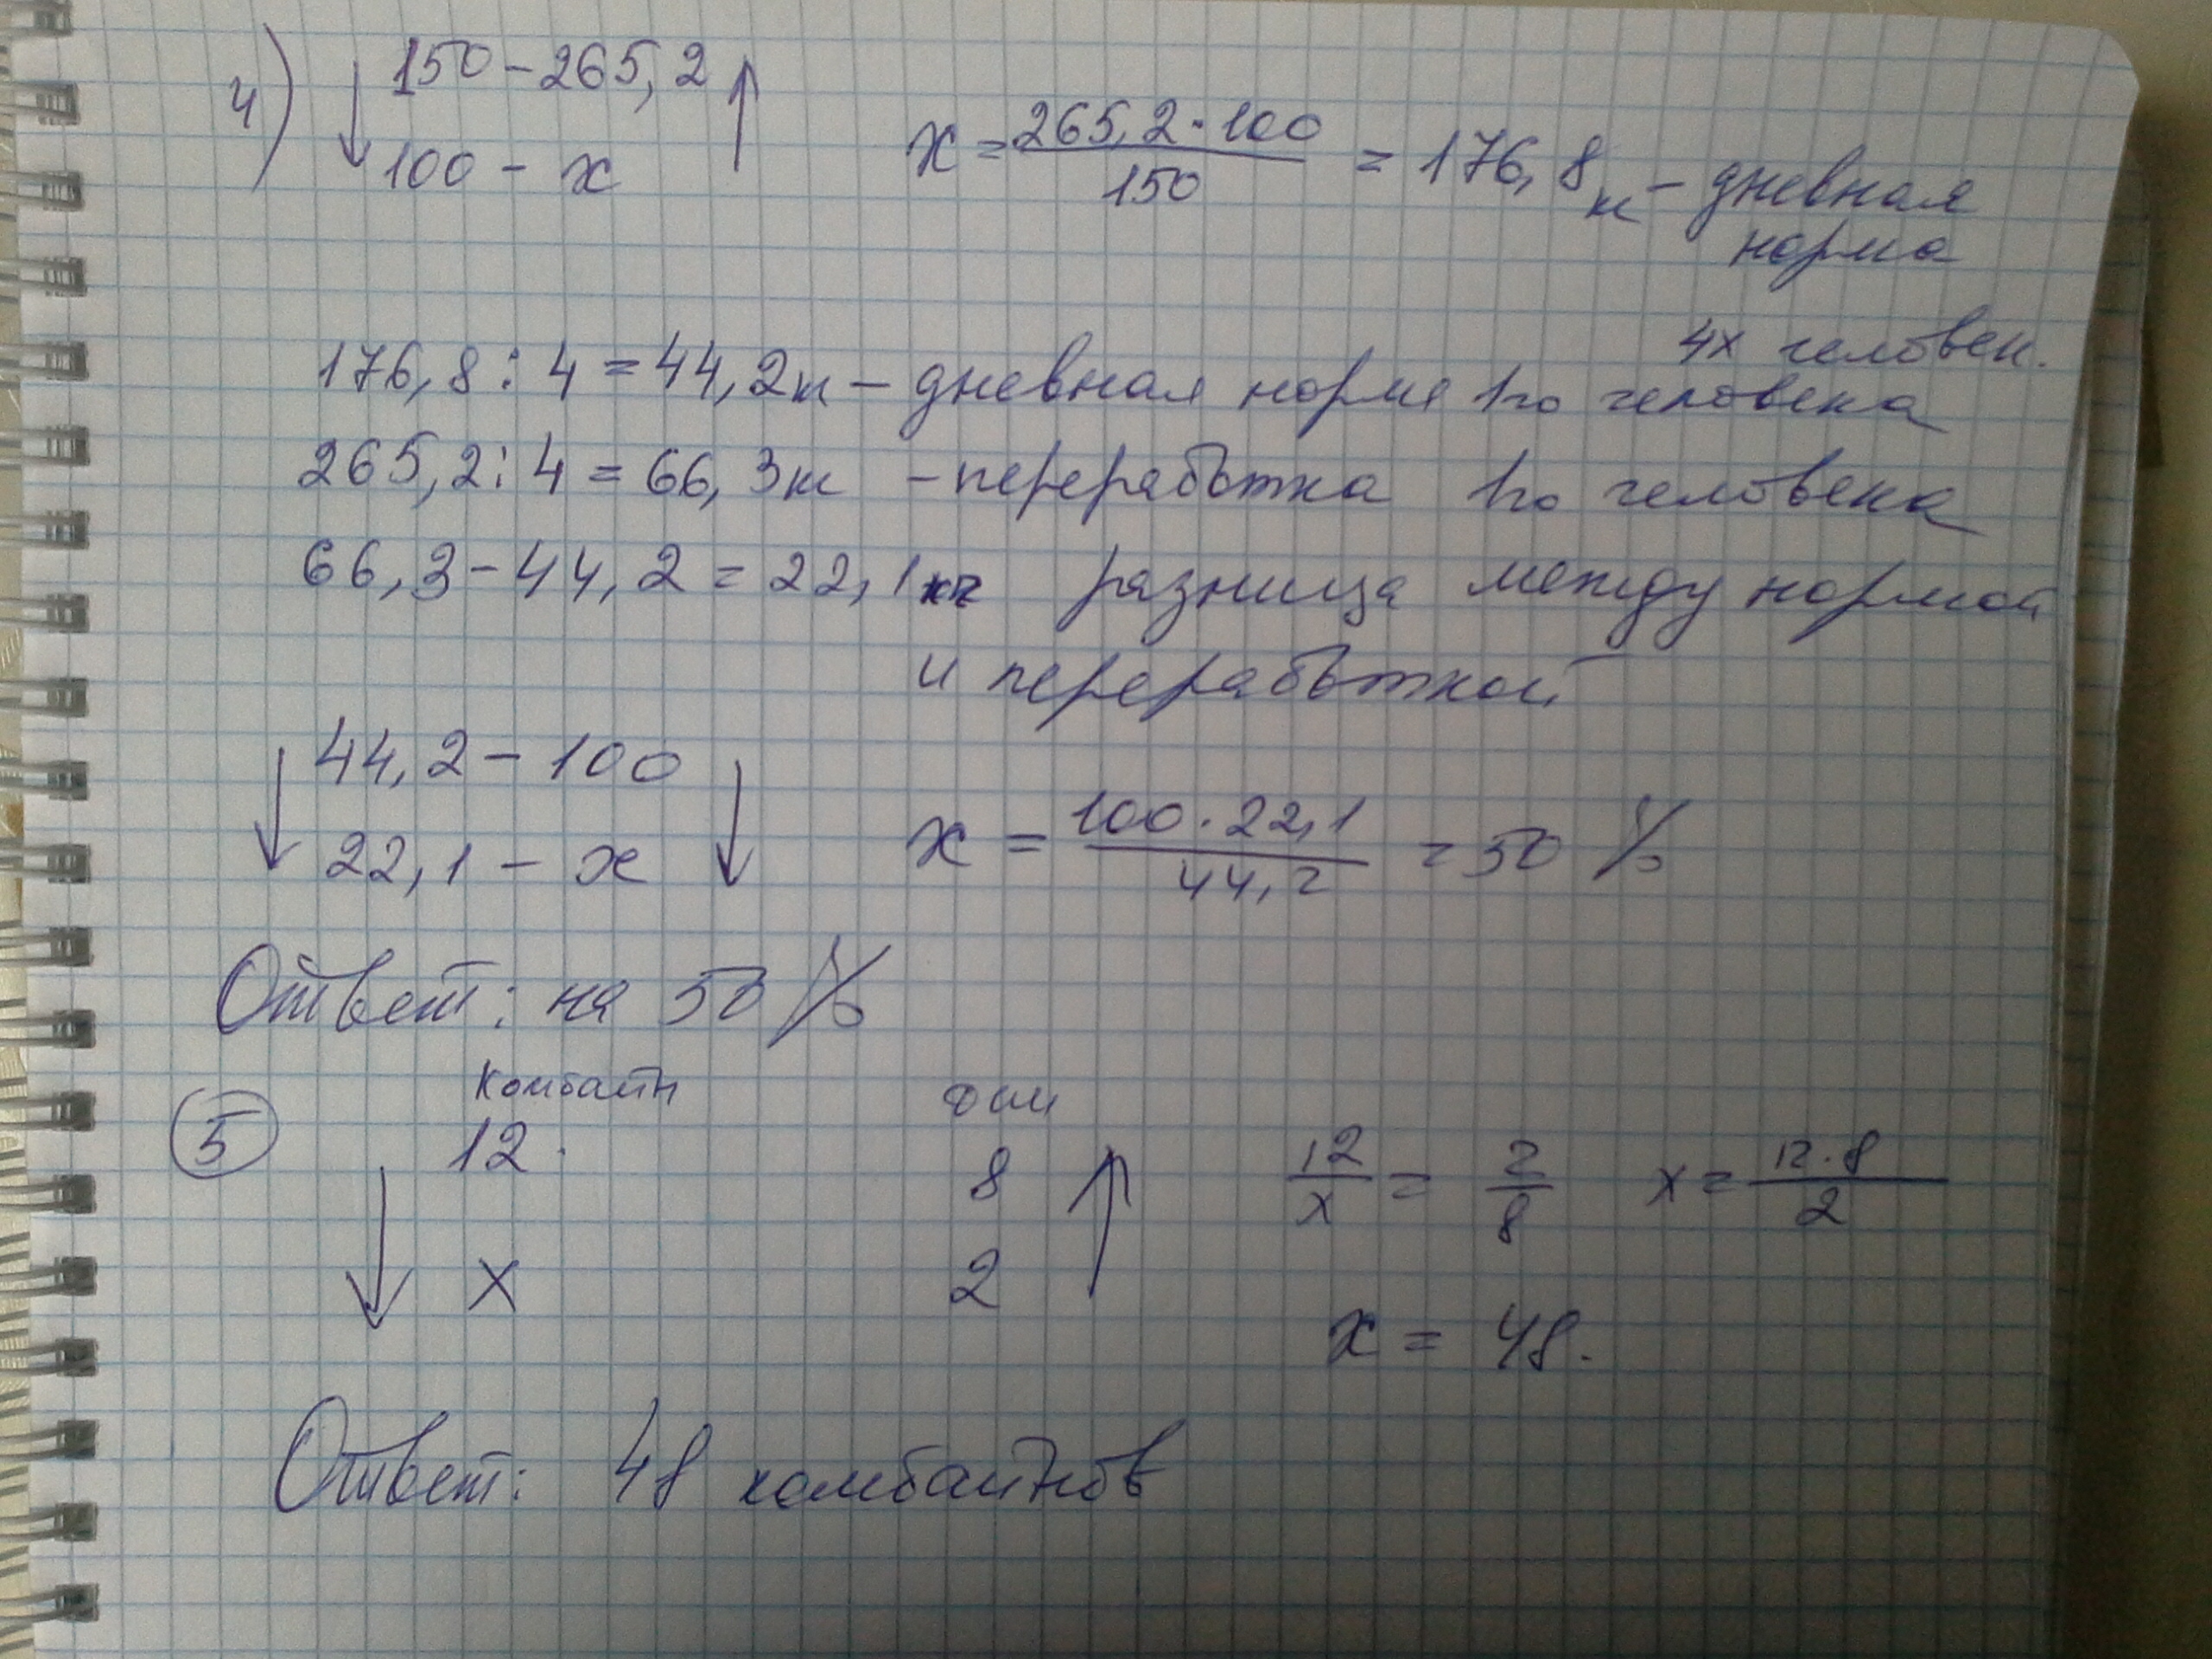 4) ↓ 150 - 265,2 ↑
100 - x
x = 265,2 · 100 / 150 = 176,8 м - дневная
норма
4х человек.
176,8 : 4 = 44,2 м - дневная норма 1го человека
265,2 : 4 = 66,3 м - переработка 1го человека
66,3 - 44,2 = 22,1 разница между нормой
и переработкой
↓ 44,2 - 100 ↓
22,1 - x
x = 100 · 22,1 / 44,2 = 50 %
Ответ: на 50 %
комбайн дни
5 ↓ 12 8 ↑
x 2
12/x = 2/8 x = 12 · 8 / 2
x = 48.
Ответ: 48 комбайнов